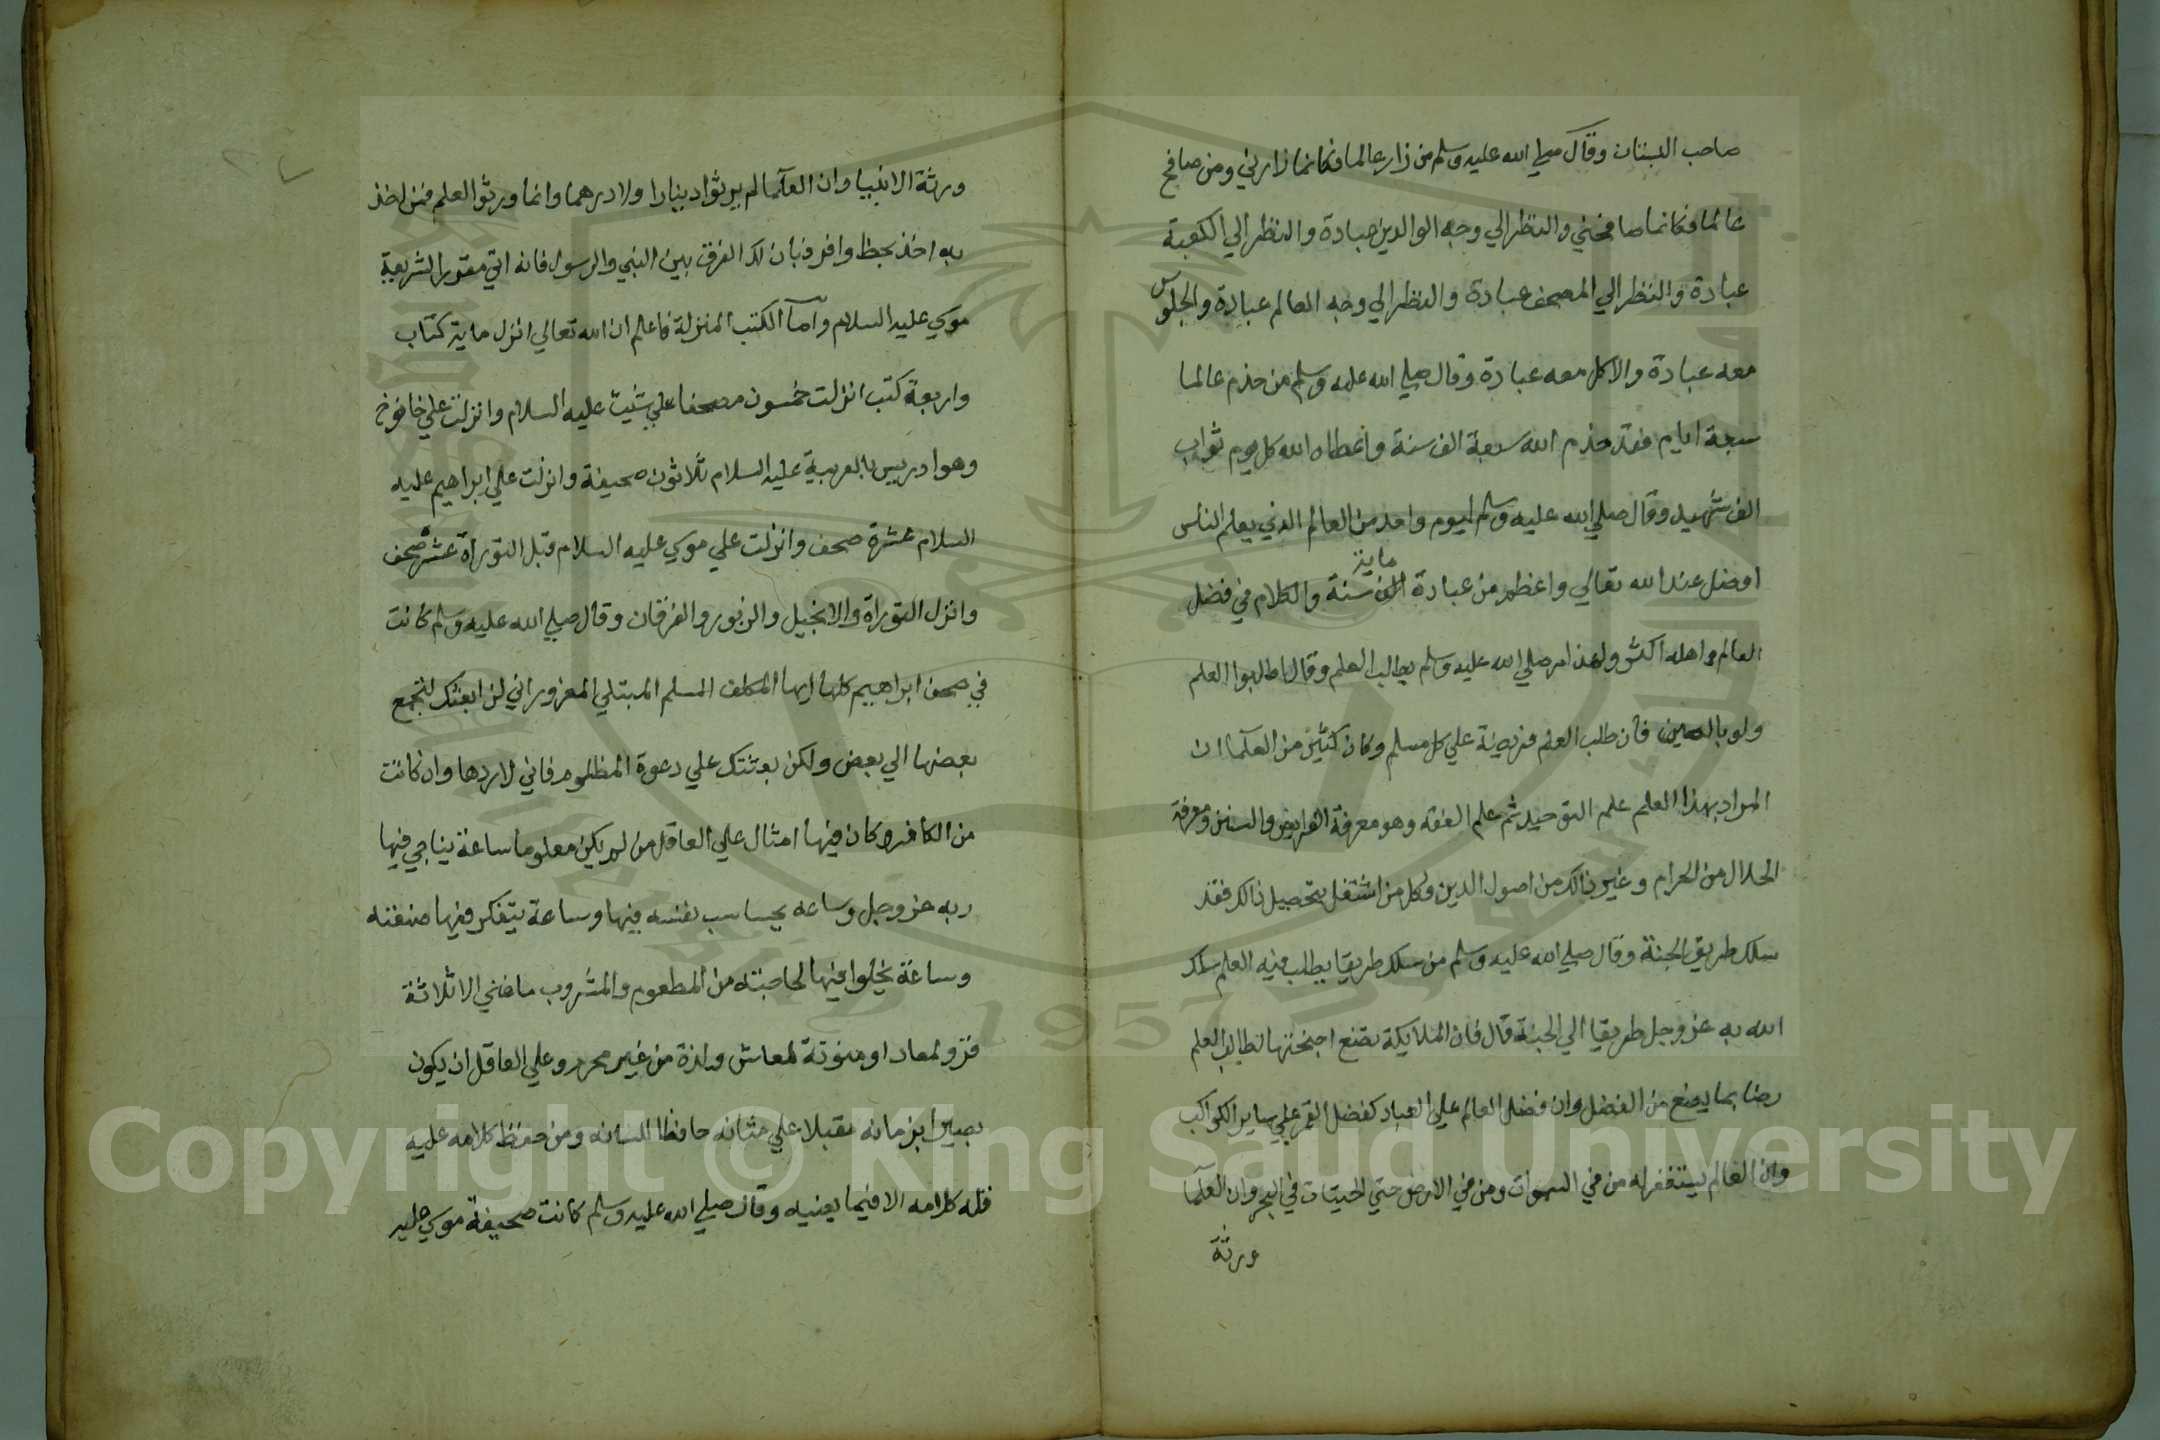 صاحب البستان وقال صلي الله عليه وسلم من زار عالما فكانما زارني ومن صافح
عالما فكانما صافحني والنظر الي وجه الوالدين عبادة والنظر الي الكعبة
عبادة والنظر الي المصحف عبادة والنظر الي وجه العالم عبادة والجلوس
معه عبادة والاكل معه عبادة وقال صلي الله عليه وسلم من خذم عالما
سبعة ايام فقد خذم الله سبعة الف سنة واعطاه الله كل يوم ثواب
الف شهيد وقال صلي الله عليه وسلم ليوم واحد من العالم الذي يعلم الناس
افضل عند الله تعالي واعظم من عبادة ماية الف سنة والكلام في فضل
العالم واهله اكثر ولهذا امر صلي الله عليه وسلم بطلب العلم وقال اطلبوا العلم
ولو بالصين فان طلب العلم فريضة علي كل مسلم وكان كثير من العلما ان
المراد بهذا العلم علم التوحيد ثم علم الفقه وهو معرفة الفرايض والسنن ومعرفة
الحلال من الحرام وغير ذالك من اصول الدين وكل من اشتغل بتحصيل ذالك فقد
سلك طريق الجنة وقال صلي الله عليه وسلم من سلك طريقا يطلب فيه العلم سلك
الله به عز وجل طريقا الي الجنة قال فان الملايكة تضع اجنحتها لطالب العلم
رضا بما يصنع من الفضل وان فضل العالم علي العباد كفضل القمر علي ساير الكواكب
وان العالم ليستغفر له من في السموات ومن في الارض حتي الحيتان في البحر وان العلما
ورثة
ورثة الانبيا وان العلما لم يورثوا دينارا ولا درهما وانما ورثوا العلم فمن اخذ
به اخذ بحظ وافر فبان لك الفرق بين النبي والرسول فانه اتي مقررا لشريعة
موسي عليه السلام واما الكتب المنزلة فاعلم ان الله تعالي انزل ماية كتاب
واربعة كتب انزلت خمسون مصحفا علي شيث عليه السلام وانزلت علي خانوخ
وهو ادريس بالعربية عليه السلام ثلاثون صحيفة وانزلت علي ابراهيم عليه
السلام عشرة صحف وانزلت علي موسي عليه السلام قبل التوراة عشرة صحف
وانزل التوراة والانجيل والزبور والفرقان وقال صلي الله عليه وسلم كانت
في صحف ابراهيم كلها ايها الملك المسلم المبتلي المغرور اني لم ابعثك لتجمع
بعضها الي بعض ولكن بعثتك علي دعوة المظلوم فاني لا اردها وان كانت
من الكافر وكان فيها امثال علي العاقل من لم يكن معلوما ساعة يناجي فيها
ربه عز وجل وساعه يحاسب نفسه فيها وساعة يتفكر فيها صنعته
وساعة يخلوا فيها لحاجته من المطعوم والمشروب ما ضني الا ثلاثة
فزو لمعاد او منوتة لمعاش ولذة من غير محرم وعلي العاقل ان يكون
بصيرا بزمانه مقبلا علي شانه حافظا للسانه ومن حفظ كلامه عليه
قله كلامه الا فيما يعنيه وقال صلي الله عليه وسلم كانت صحيفة موسي عليه
Copyright © King Saud University
1957